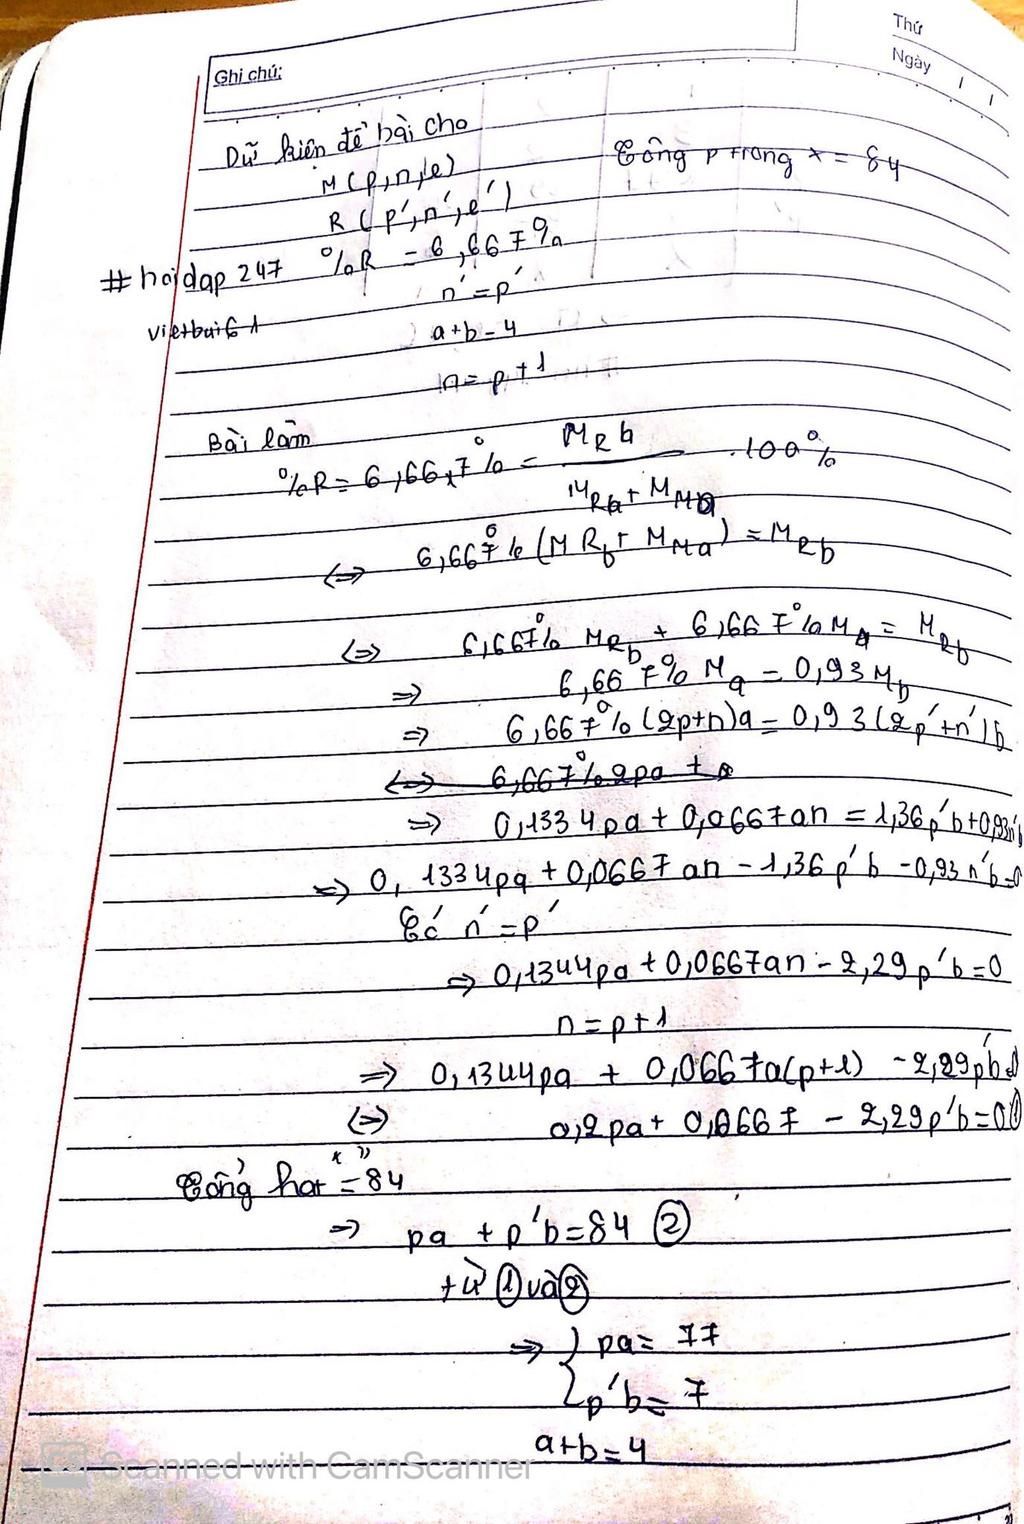 Thứ
Ngày / /
Ghi chú:
Dữ kiện đề bài cho
Tổng p trong x = 84
M (p,n,e)
R (p',n',e')
#hoidap247 %R = 6,667%
vietbui61
n' = p'
a+b=4
n=p+1
Bài làm
%R = 6,667% = MRb / MRb + MMa .100%
<=> 6,667% (MRb + MMa) = MRb
<=> 6,667% MRb + 6,667% Ma = MRb
=> 6,667% Ma = 0,93 Mb
=> 6,667% (2p+n)a = 0,93(2p'+n')b
<=> 6,667% 2pa +
=> 0,1334pa + 0,0667an = 1,36p'b+0,93n'b
=> 0,1334pa + 0,0667an - 1,36p'b - 0,93n'b=0
Có n' = p'
=> 0,1344pa + 0,0667an - 2,29p'b=0
n=p+1
=> 0,1344pa + 0,0667a(p+1) - 2,29p'b=0
<=> 0,2pa + 0,0667 - 2,29p'b=0 ①
Tổng hạt "x" = 84
=> pa + p'b = 84 ②
từ ① và ②
=> { pa = 77
p'b = 7
a+b=4
CS Scanned with CamScanner